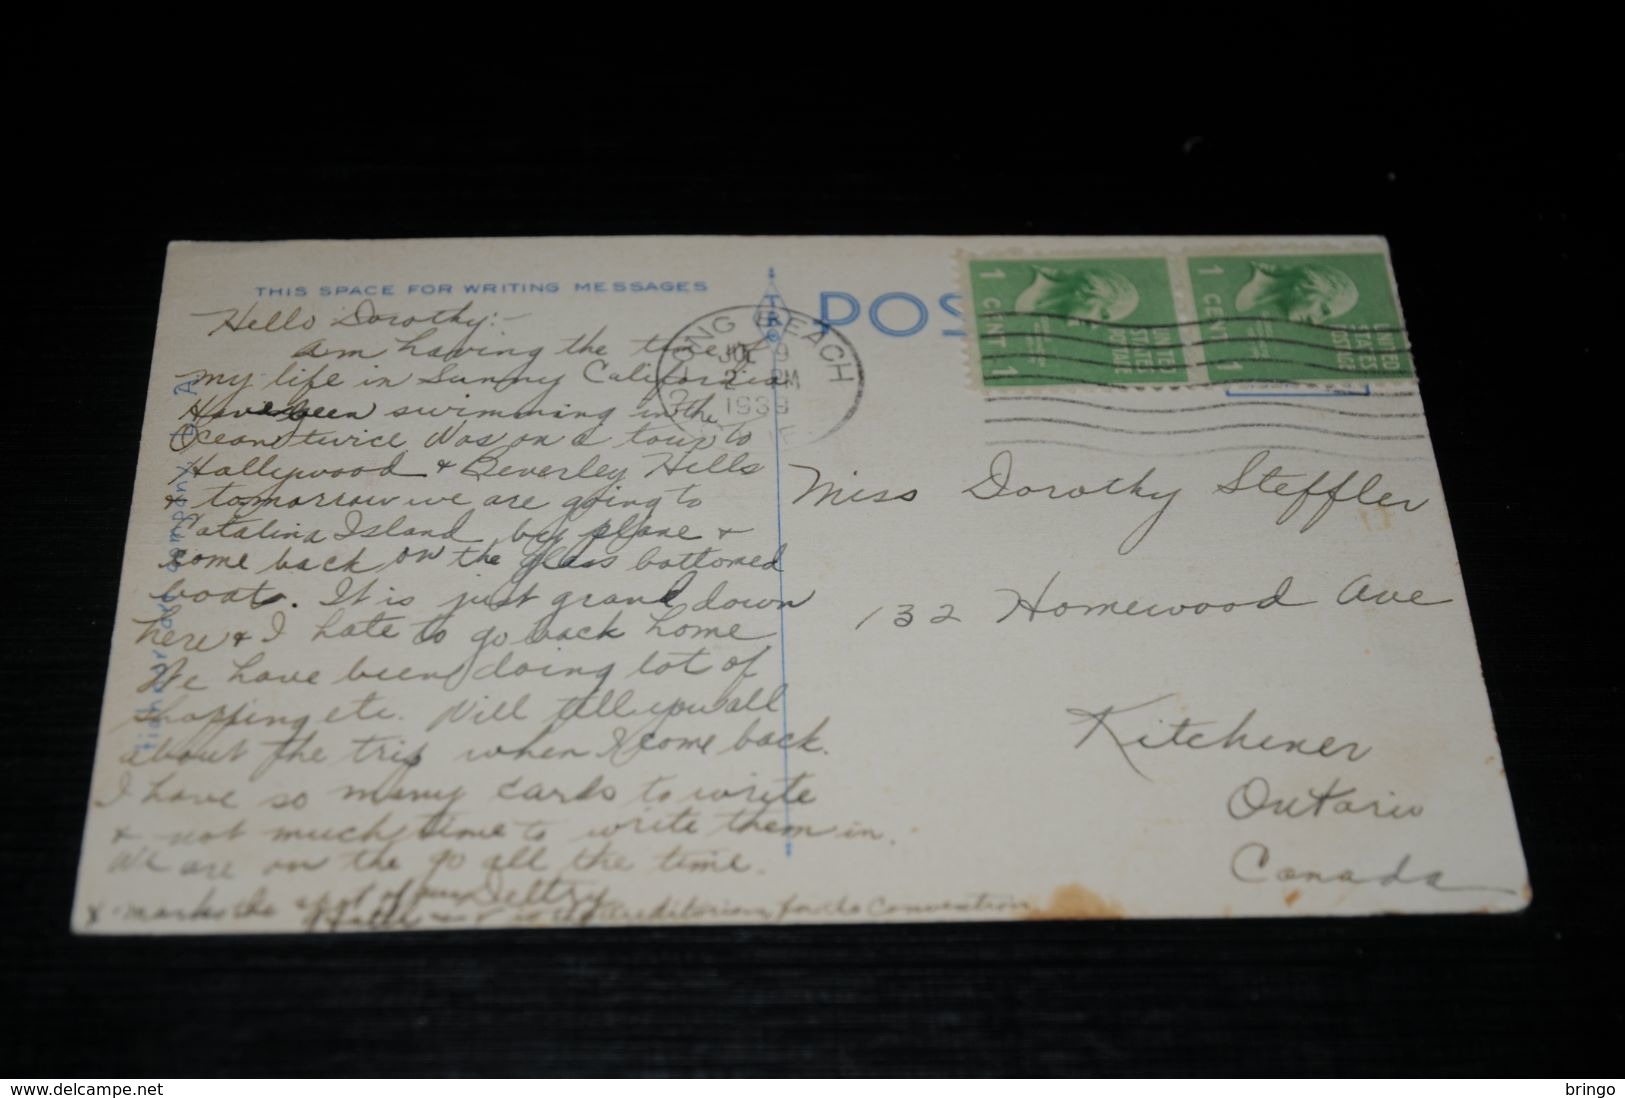 THIS SPACE FOR WRITING MESSAGES
Hello Dorothy:-
Am having the time of
my life in Sunny California
Have been swimming in the
Ocean twice Was on a tour to
Hollywood & Beverley Hills
& tomorrow we are going to
Catalina Island by plane &
come back on the glass bottomed
boat. It is just grand down
here & I hate to go back home
We have been doing lot of
shopping etc. Will tell you all
about the trip when I come back.
I have so many cards to write
& not much time to write them in.
We are on the go all the time.
x marks the spot of our
Hotel auditorium for the Convention
LONG BEACH
JUL 9
2 PM
1939
CALIF
POS
1 CENT 1
UNITED STATES POSTAGE
1 CENT 1
UNITED STATES POSTAGE
Miss Dorothy Steffler
132 Homewood Ave
Kitchener
Ontario
Canada
www.delcampe.net
bringo